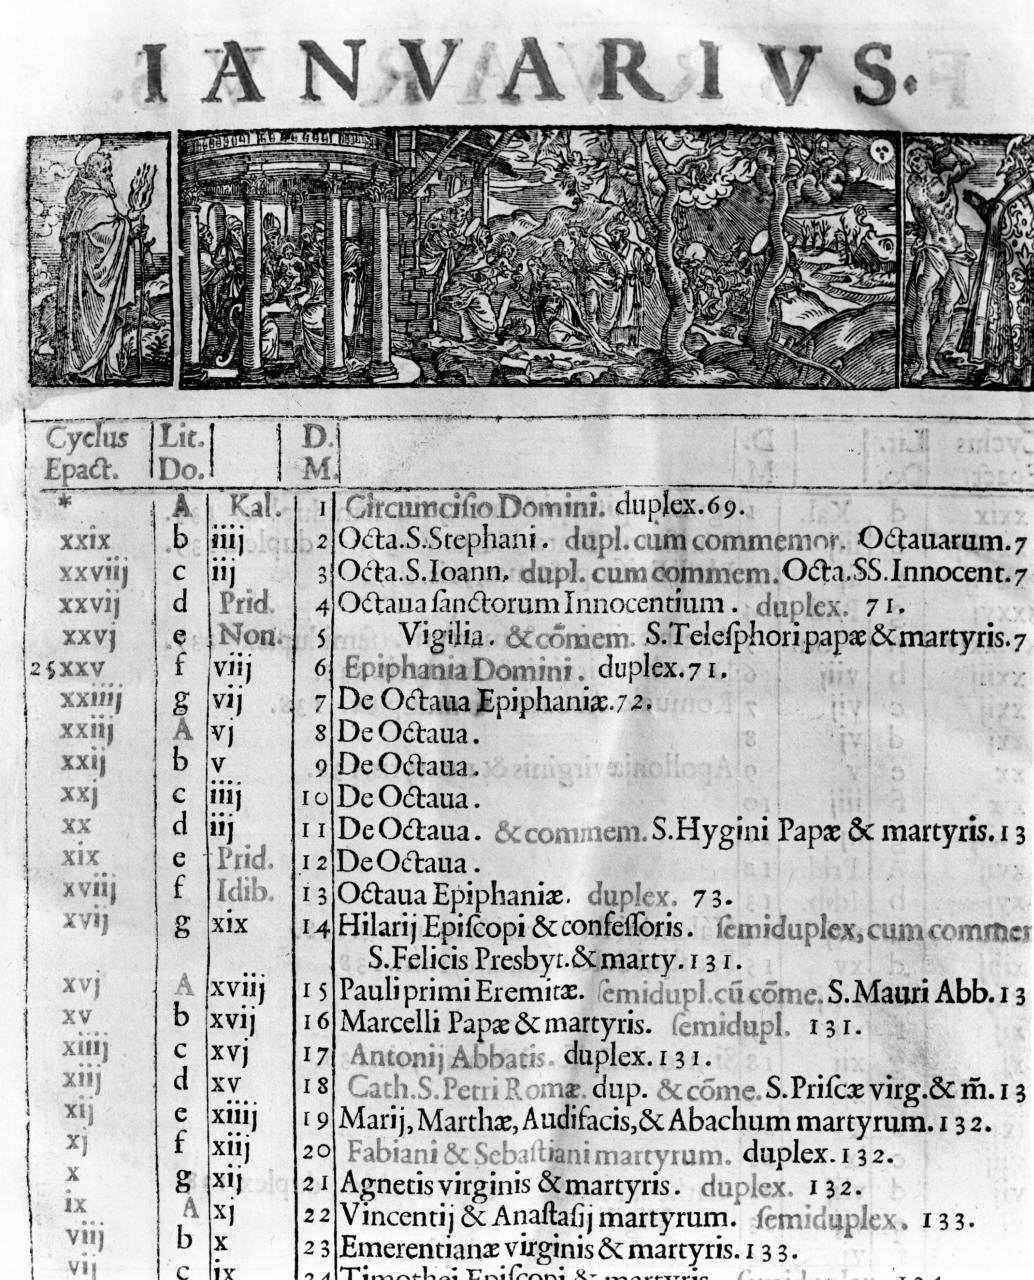 IANVARIVS.
Cyclus Lit. D.
Epact. Do. M.
* A Kal. 1 Circumciſio Domini. duplex. 69.
xxix b iiij 2 Octa. S. Stephani. dupl. cum commemor. Octauarum. 7
xxviij c iij 3 Octa. S. Ioann. dupl. cum commem. Octa. SS. Innocent. 7
xxvij d Prid. 4 Octaua ſanctorum Innocentium. duplex. 71.
xxvj e Non. 5 Vigilia. & cõmem. S. Teleſphori papæ & martyris. 7
25 xxv f viij 6 Epiphania Domini. duplex. 71.
xxiiij g vij 7 De Octaua Epiphaniæ. 72.
xxiij A vj 8 De Octaua.
xxij b v 9 De Octaua.
xxj c iiij 10 De Octaua.
xx d iij 11 De Octaua. & commem. S. Hygini Papæ & martyris. 13
xix e Prid. 12 De Octaua.
xviij f Idib. 13 Octaua Epiphaniæ. duplex. 73.
xvij g xix 14 Hilarij Epiſcopi & confeſſoris. ſemiduplex, cum commem
S. Felicis Presbyt. & marty. 131.
xvj A xviij 15 Pauli primi Eremitæ. ſemidupl. cũ cõme. S. Mauri Abb. 13
xv b xvij 16 Marcelli Papæ & martyris. ſemidupl. 131.
xiiij c xvj 17 Antonij Abbatis. duplex. 131.
xiij d xv 18 Cath. S. Petri Romæ. dup. & cõme. S. Priſcæ virg. & m̃. 13
xij e xiiij 19 Marij, Marthæ, Audifacis, & Abachum martyrum. 132.
xj f xiij 20 Fabiani & Sebaſtiani martyrum. duplex. 132.
x g xij 21 Agnetis virginis & martyris. duplex. 132.
ix A xj 22 Vincentij & Anaſtaſij martyrum. ſemiduplex. 133.
viij b x 23 Emerentianæ virginis & martyris. 133.
vij c ix 24 Timothei Epiſcopi & martyris.